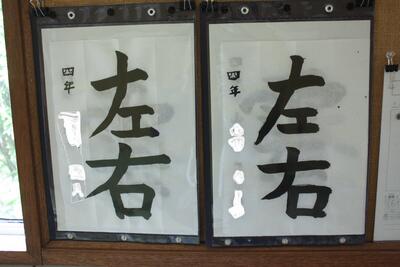 四年
左右
四年
左右